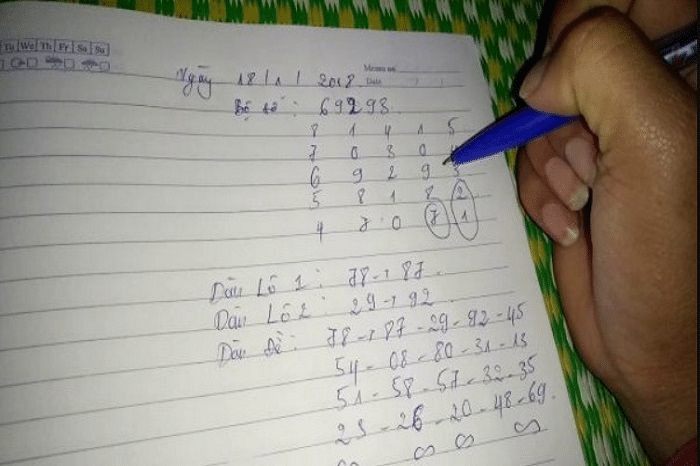 Tu We Th Fr Sa Su
Memo no.
Date / /
Ngày 18/1/2018
Bộ đề: 69293.
8 1 4 1 5
7 0 3 0 4
6 9 2 9 3
5 8 1 8 2
4 7 0 7 1
Dàn Lô 1: 78-87.
Dàn Lô 2: 29-92.
Dàn Đề: 78-87-29-92-45
54-08-80-31-13
51-58-57-32-35
23-26-20-48-69.